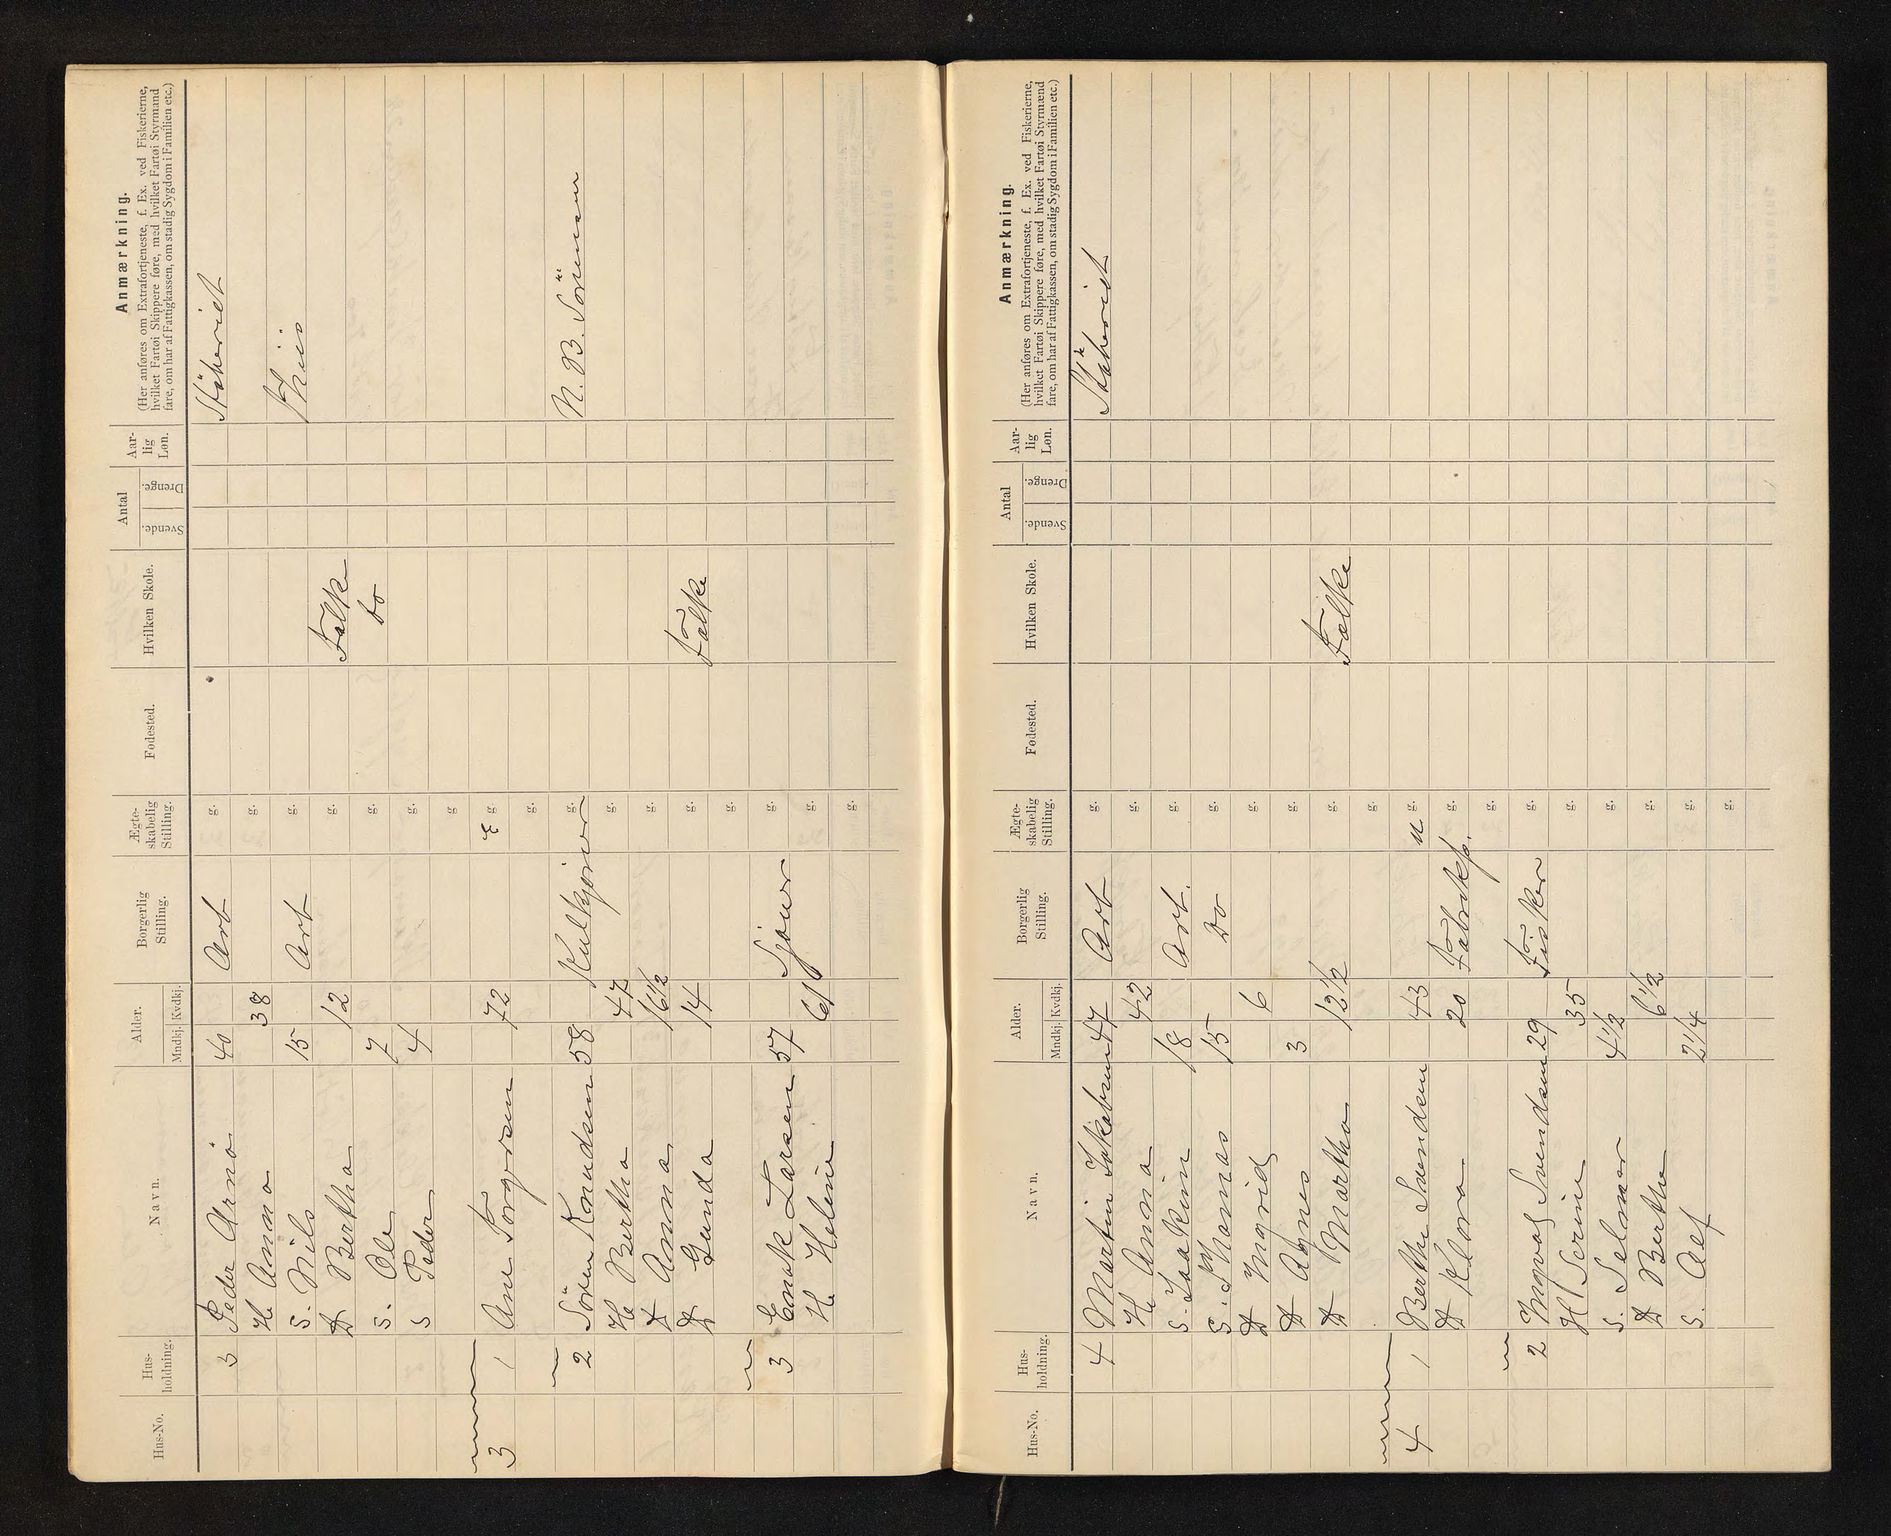 Hus-No. Hus-holdning. Navn. Alder. Mndkj. Kvdkj. Borgerlig Stilling. Ægte-skabelig Stilling. Fødested. Hvilken Skole. Antal Svende. Drenge. Aar-lig Løn. Anmærkning.
(Her anføres om Extrafortjeneste, f. Ex. ved Fiskerierne, hvilket Fartøi Skippere føre, med hvilket Fartøi Styrmænd fare, om har af Fattigkassen, om stadig Sygdom i Familien etc.)
3 Peder Arnö 40 Arb g. Stöberiet
H. Anna 38 g.
S. Nils 15 Arb g. Thiis
D Bertha 12 g. Folke
S. Ole 7 g. do
S Peder 4 g.
g
3 1 Ane Torgersen 72 E g.
g.
2 Sören Knudsen 58 Kulkjörer g. N. B. Sörensen
H Bertha 47 g.
D Anna 16 1/2 g.
D Gunda 14 g. Folke
g.
3 Enok Larsen 57 Sjouer g.
H. Heline 61 g.
g.
Hus-No. Hus-holdning. Navn. Alder. Mndkj. Kvdkj. Borgerlig Stilling. Ægte-skabelig Stilling. Fødested. Hvilken Skole. Antal Svende. Drenge. Aar-lig Løn. Anmærkning.
(Her anføres om Extrafortjeneste, f. Ex. ved Fiskerierne, hvilket Fartøi Skippere føre, med hvilket Fartøi Styrmænd fare, om har af Fattigkassen, om stadig Sygdom i Familien etc.)
4 Martin Jakobsen 47 Arb g. Stöberiet
H. Anna 42 g.
S. Joakim 18 Arb. g.
S. Thomas 15 Do g.
D Ingrid 6 g.
D Agnes 3 g.
D Martha 12 1/2 g. Folke
g.
4 1 Berthe Svendsen 43 u g.
D Klara 20 Fabrikp. g.
g.
2 Ingval Svendsen 29 Fisker g.
H Serine 35 g.
S. Selmer 4 1/2 g.
D Berthe 6 1/2 g.
S. Alf 2 1/4 g.
g.